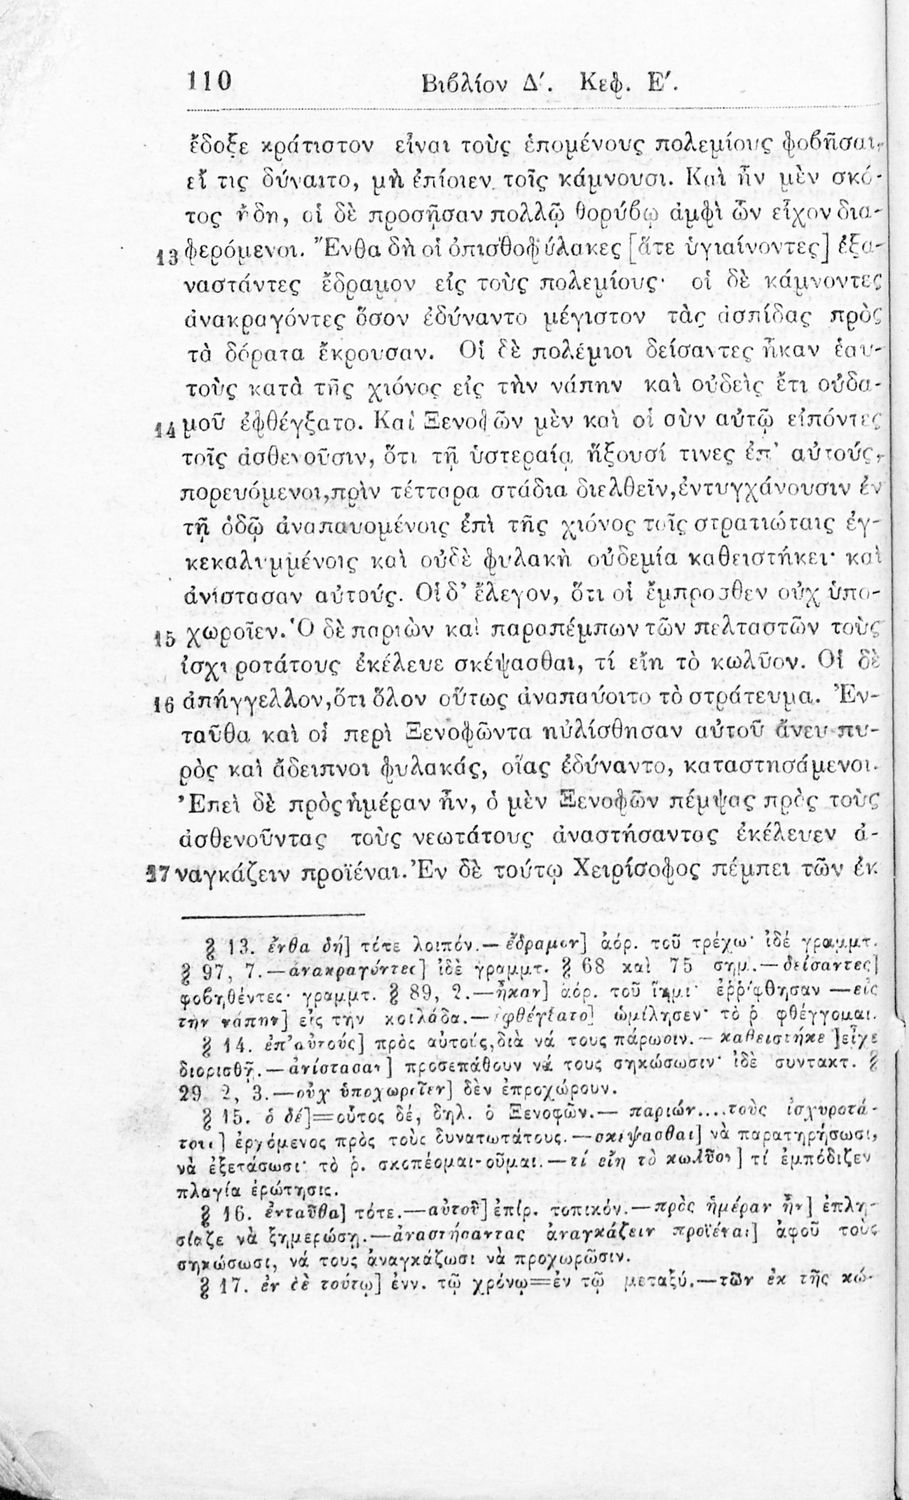 110 Βιβλίον Δ΄. Κεφ. Ε΄.
ἔδοξε κράτιστον εἶναι τοὺς ἑπομένους πολεμίους φοβῆσαι,
εἴ τις δύναιτο, μὴ ἐπίοιεν τοῖς κάμνουσι. Καὶ ἦν μὲν σκό-
τος ἤδη, οἱ δὲ προσῇσαν πολλῷ θορύβῳ ἀμφὶ ὧν εἶχον δια-
13 φερόμενοι. Ἔνθα δὴ οἱ ὀπισθοφύλακες [ἅτε ὑγιαίνοντες] ἐξα-
ναστάντες ἔδραμον εἰς τοὺς πολεμίους· οἱ δὲ κάμνοντες
ἀνακραγόντες ὅσον ἐδύναντο μέγιστον τὰς ἀσπίδας πρὸς
τὰ δόρατα ἔκρουσαν. Οἱ δὲ πολέμιοι δείσαντες ἧκαν ἑαυ-
τοὺς κατὰ τῆς χιόνος εἰς τὴν νάπην καὶ οὐδεὶς ἔτι οὐδα-
14 μοῦ ἐφθέγξατο. Καὶ Ξενοφῶν μὲν καὶ οἱ σὺν αὐτῷ εἰπόντες
τοῖς ἀσθενοῦσιν, ὅτι τῇ ὑστεραίᾳ ἥξουσί τινες ἐπ᾽ αὐτούς,
πορευόμενοι,πρὶν τέτταρα στάδια διελθεῖν,ἐντυγχάνουσιν ἐν
τῇ ὁδῷ ἀναπαυομένοις ἐπὶ τῆς χιόνος τοῖς στρατιώταις ἐγ-
κεκαλυμμένοις καὶ οὐδὲ φυλακὴ οὐδεμία καθειστήκει· καὶ
ἀνίστασαν αὐτούς. Οἱ δ᾽ ἔλεγον, ὅτι οἱ ἔμπροσθεν οὐχ ὑπο-
15 χωροῖεν. Ὁ δὲ παριὼν καὶ παραπέμπων τῶν πελταστῶν τοὺς
ἰσχυροτάτους ἐκέλευε σκέψασθαι, τί εἴη τὸ κωλῦον. Οἱ δὲ
16 ἀπήγγελλον,ὅτι ὅλον οὕτως ἀναπαύοιτο τὸ στράτευμα. Ἐν-
ταῦθα καὶ οἱ περὶ Ξενοφῶντα ηὐλίσθησαν αὐτοῦ ἄνευ πυ-
ρὸς καὶ ἄδειπνοι φυλακάς, οἵας ἐδύναντο, καταστησάμενοι.
Ἐπεὶ δὲ πρὸς ἡμέραν ἦν, ὁ μὲν Ξενοφῶν πέμψας πρὸς τοὺς
ἀσθενοῦντας τοὺς νεωτάτους ἀναστήσαντας ἐκέλευεν ἀ-
17 ναγκάζειν προϊέναι. Ἐν δὲ τούτῳ Χειρίσοφος πέμπει τῶν ἐκ
§ 13. ἔνθα δή] τότε λοιπόν.— ἔδραμον] ἀόρ. τοῦ τρέχω· ἰδὲ γραμμτ.
§ 97, 7.—ἀνακραγόντες] ἰδὲ γραμμτ. § 68 καὶ 75 σημ.—δείσαντες]
φοβηθέντες· γραμμτ. § 89, 2.—ἧκαν] ἀόρ. τοῦ ἵημι· ἐρρίφθησαν —εἰς
τὴν νάπην] εἰς τὴν κοιλάδα.—ἐφθέγξατο] ὡμίλησεν· τὸ ῥ φθέγγομαι.
§ 14. ἐπ᾽ αὐτούς] πρὸς αὐτούς,διὰ νά τους πάρωσιν.— καθειστήκε ]εἶχε
διορισθῆ.—ἀνίστασαν] προσεπάθουν νά τους σηκώσωσιν· ἰδὲ συντακτ. §
29 2, 3.—οὐχ ὑποχωροῖεν] δὲν ἐπροχώρουν.
§ 15. ὁ δέ]=οὗτος δέ, δηλ. ὁ Ξενοφῶν.— παριών....τοὺς ἰσχυροτά-
τους] ἐρχόμενος πρὸς τοὺς δυνατωτάτους.—σκέψασθαι] νὰ παρατηρήσωσι,
νὰ ἐξετάσωσι· τὸ ῥ. σκοπέομαι-οῦμαι.—τί εἴη τὸ κωλῦον] τί ἐμπόδιζεν
πλαγία ἐρώτησις.
§ 16. ἐνταῦθα] τότε.—αὐτοῦ] ἐπίρ. τοπικόν.—πρὸς ἡμέραν ἦν] ἐπλη-
σίαζε νὰ ξημερώσῃ.—ἀναστήσαντας ἀναγκάζειν προϊέναι] ἀφοῦ τοὺς
σηκώσωσι, νά τους ἀναγκάζωσι νὰ προχωρῶσιν.
§ 17. ἐν δὲ τούτῳ] ἐνν. τῷ χρόνῳ=ἐν τῷ μεταξύ.—τῶν ἐκ τῆς κώ-